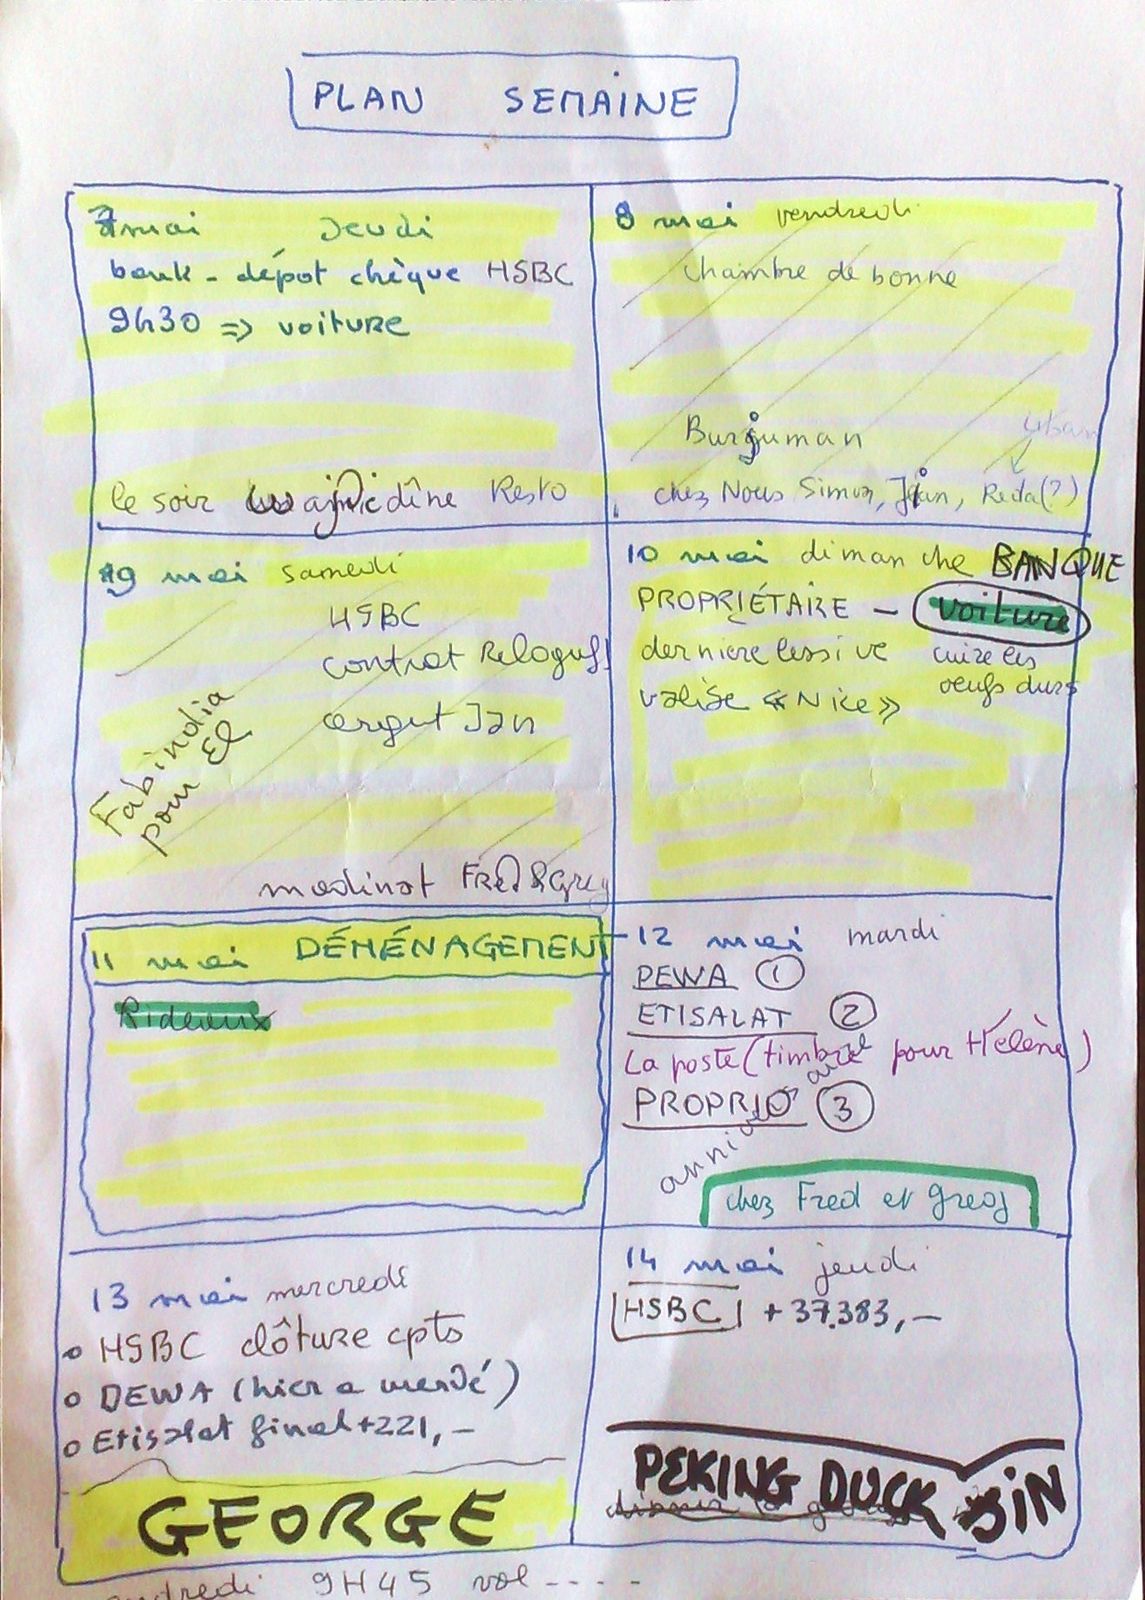 PLAN SEMAINE
7 mai Jeudi
bank - dépôt chèque HSBC
9h30 => voiture
le soir dîne Resto
8 mai vendredi
chambre de bonne
Burjuman
chez Nous Simon, Jian, Reda(?)
9 mai samedi
HSBC
contrat
argent Jan
Fabindia
pour El
madinat Fred & Greg
10 mai dimanche BANQUE
PROPRIÉTAIRE - voiture
derniere lessive
cuire les
oeufs durs
valise «Nice»
11 mai DÉMÉNAGEMENT
Rideaux
12 mai mardi
DEWA 1
ETISALAT 2
La poste (timbre pour Hélène)
PROPRIO 3
chez Fred et Greg
13 mai mercredi
o HSBC clôture cpts
o DEWA (hier a merdé)
o Etisalat final +221,-
GEORGE
14 mai jeudi
HSBC + 37.383,-
PEKING DUCK
9H45 vol ----